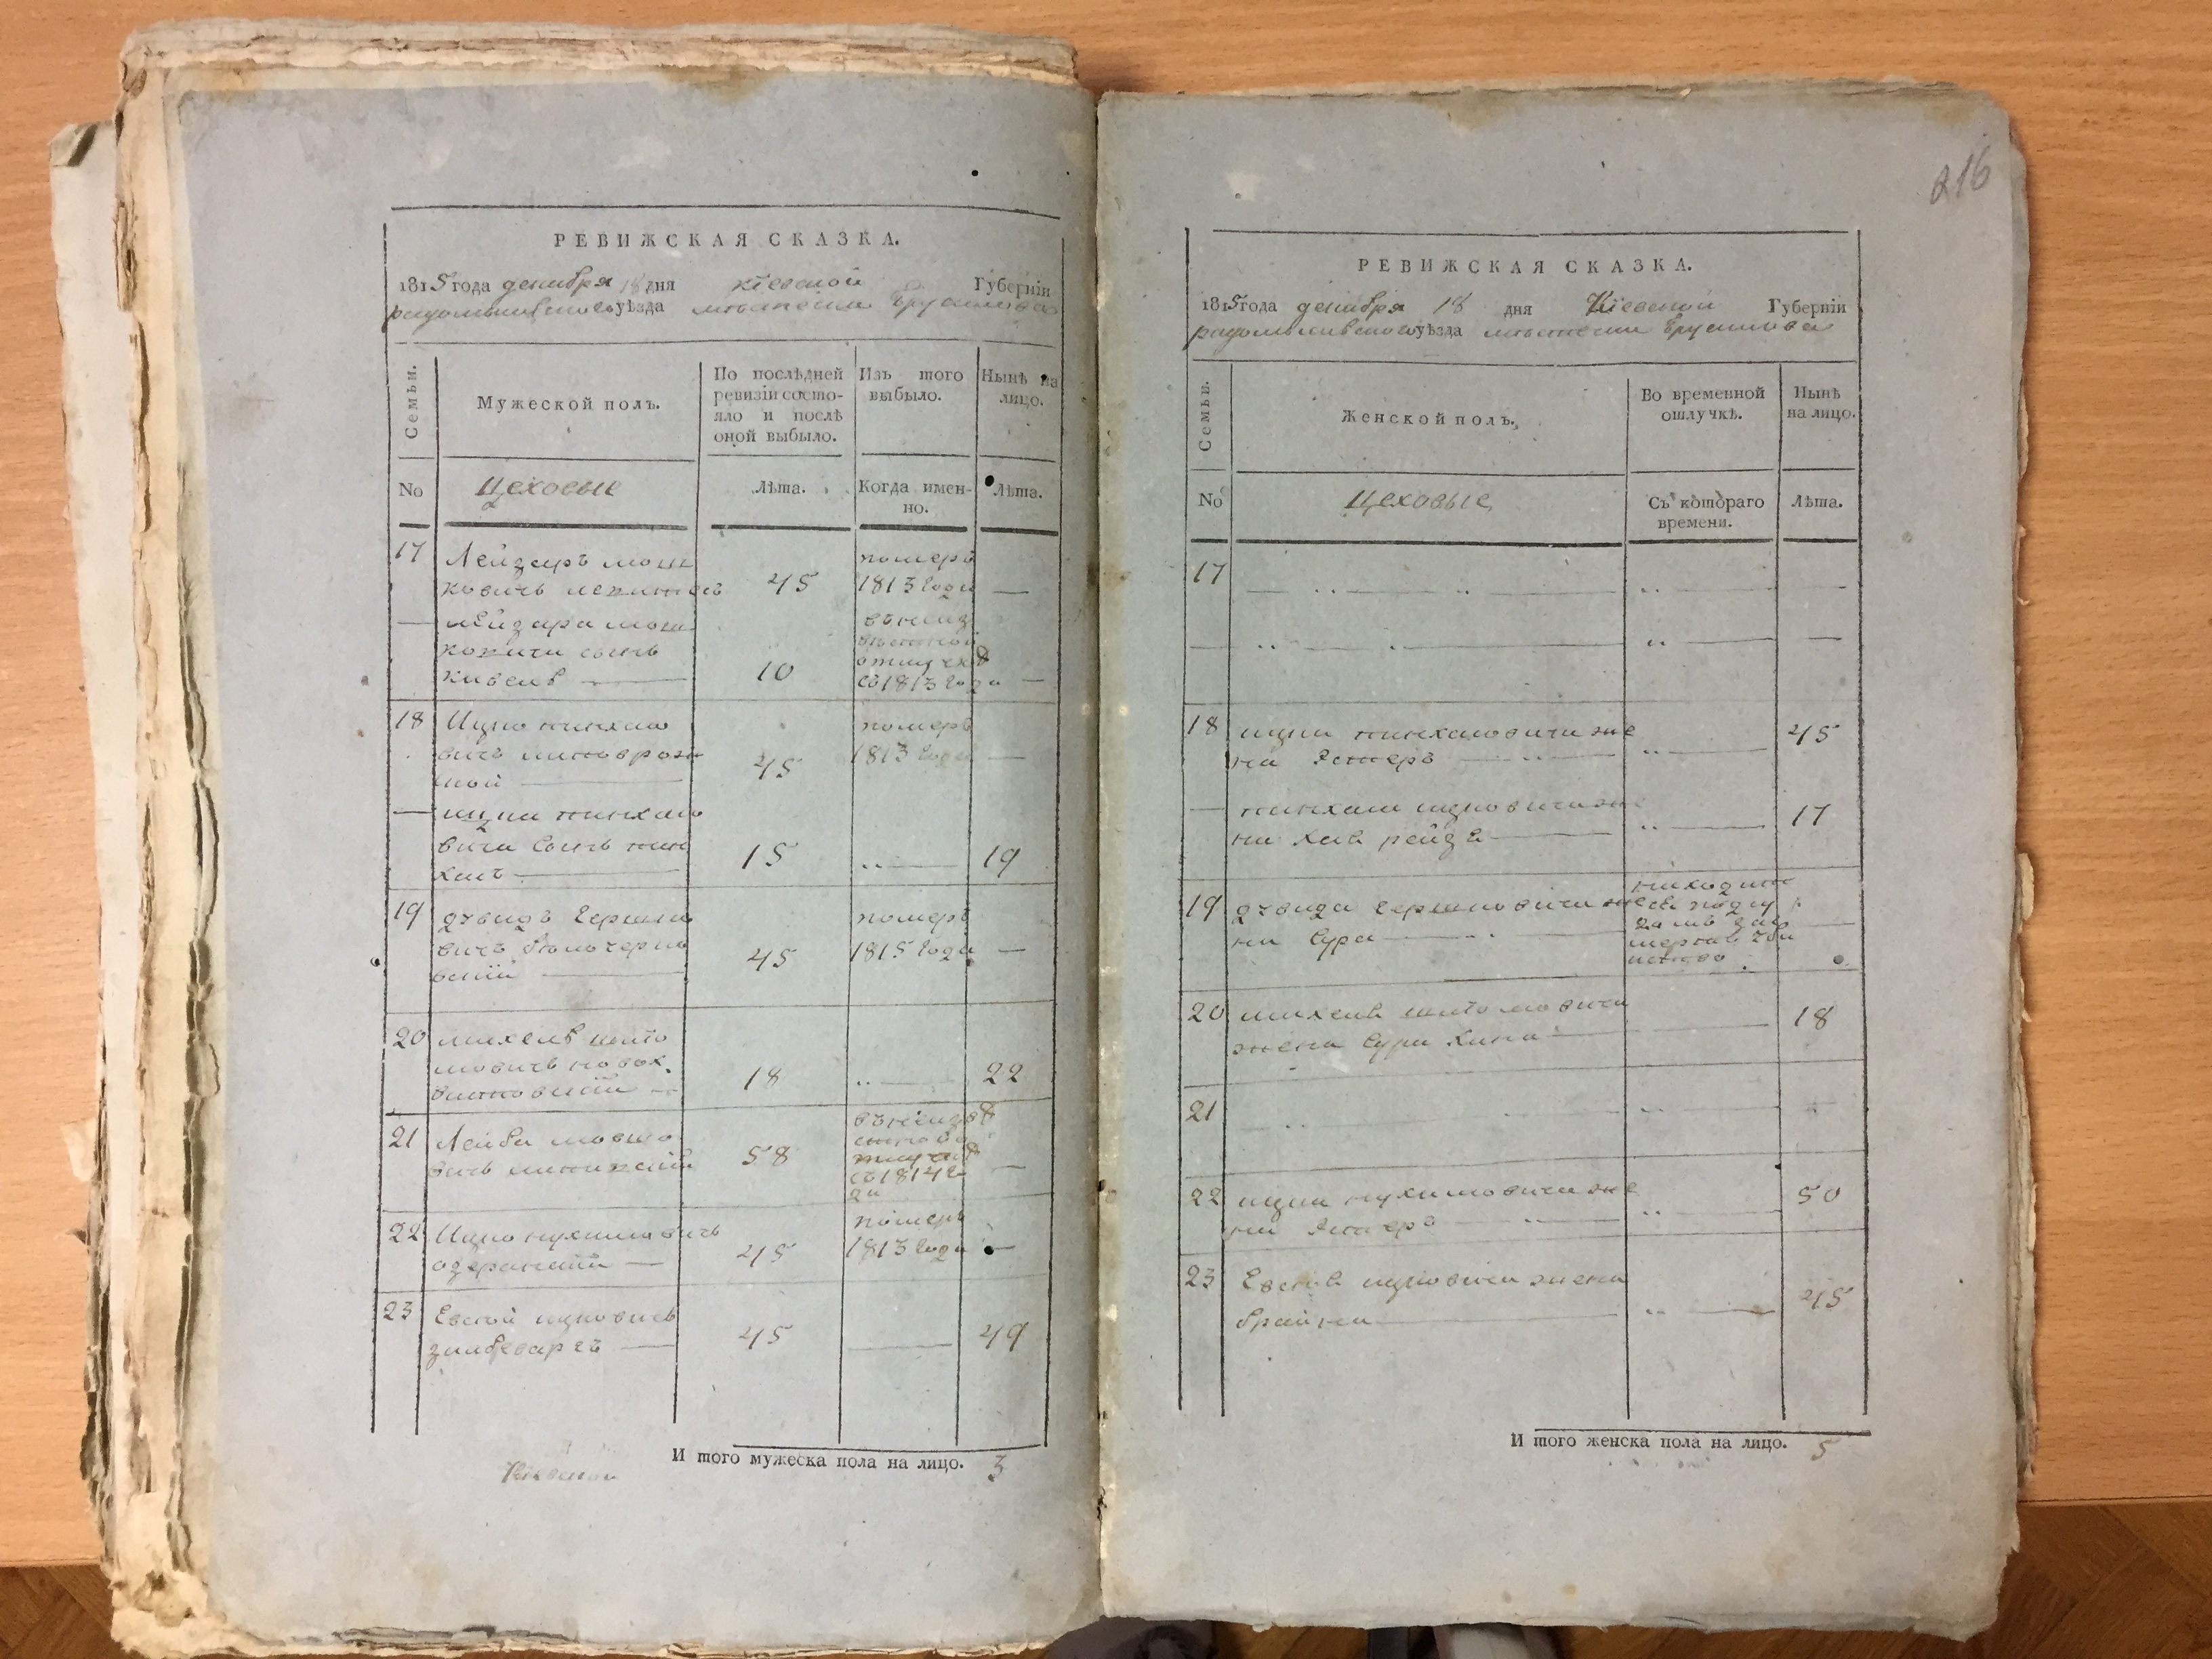 РЕВИЖСКАЯ СКАЗКА.
1815 года декабря 18 дня Кіевской Губерніи
радомысльского уѣзда мѣстечка Брусилова
Семьи.
Мужеской полъ.
По послѣдней ревизіи состо-
яло и послѣ
оной выбыло.
Изъ того
выбыло.
Нынѣ на
лицо.
No
Цеховые
Лѣта.
Когда имен-
но.
Лѣта.
17 Лейзаръ мош
ковичь 45
померъ
1813 года —
— лейзара мош
ковича сынъ
кивель — 10
въ неиз
вѣстной
отлучкѣ
съ 1813 года —
18 Ицко пинхасо
вичь 45
померъ
1813 года —
— ицка пинхасо
вича сынъ пин
хасъ — 15 — 19
19 давидъ гершко
вичь бѣлочерков
скій — 45
померъ
1815 года —
20 михель шмо
вичь 18 — 22
21 Лейба мовшо
вичь 58
въ неизвѣ
стной о
тлучкѣ
съ 1814 го
да —
22 Ицко нухимовичь
45
померъ
1813 года —
23 Евсей ицковичь
зильбервартъ — 45 — 49
И того мужеска пола на лицо. 3
Кіевской
216
РЕВИЖСКАЯ СКАЗКА.
1815 года декабря 18 дня Кіевской Губерніи
радомысльского уѣзда мѣстечка Брусилова
Семьи.
Женской полъ.
Во временной
отлучкѣ.
Нынѣ
на лицо.
No
Цеховые
Съ котораго
времени.
Лѣта.
17
18 ицка пинхасовича же
на Эстеръ — 45
— пинхаса ицковича же
на Хая рейзя — 17
19 давида гершковича же
на Сура —
20 михеля
жена Сура Хана — 18
21
22 ицка нухимовича же
на Эстеръ — 50
23 Евсея ицковича жена
брайна — 45
И того женска пола на лицо. 5